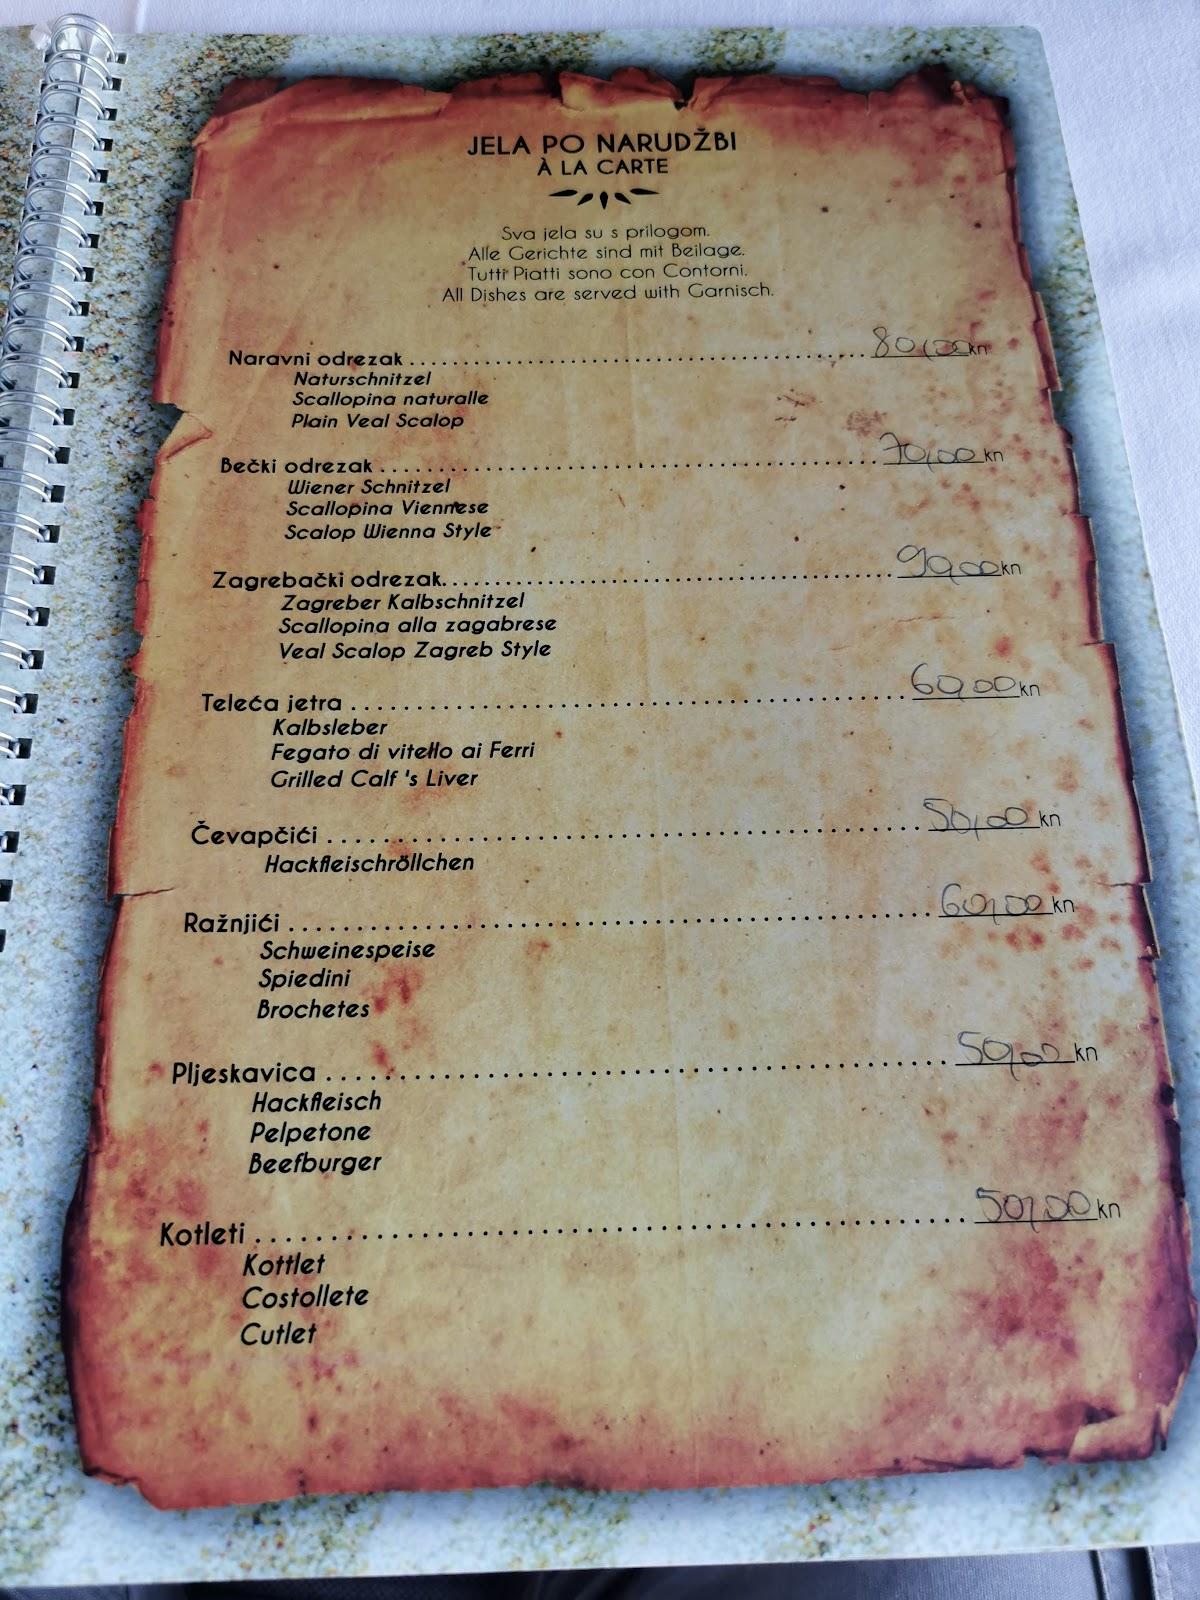 JELA PO NARUDŽBI
À LA CARTE
Sva jela su s prilogom.
Alle Gerichte sind mit Beilage.
Tutti Piatti sono con Contorni.
All Dishes are served with Garnisch.
Naravni odrezak ........................................ 80,00 kn
Naturschnitzel
Scallopina naturalle
Plain Veal Scalop
Bečki odrezak ........................................ 70,00 kn
Wiener Schnitzel
Scallopina Viennese
Scalop Wienna Style
Zagrebački odrezak........................................ 90,00 kn
Zagreber Kalbschnitzel
Scallopina alla zagabrese
Veal Scalop Zagreb Style
Teleća jetra ........................................ 60,00 kn
Kalbsleber
Fegato di vitello ai Ferri
Grilled Calf 's Liver
Čevapčići ........................................ 50,00 kn
Hackfleischröllchen
Ražnjići ........................................ 60,00 kn
Schweinespeise
Spiedini
Brochetes
Pljeskavica ........................................ 50,00 kn
Hackfleisch
Pelpetone
Beefburger
Kotleti ........................................ 50,00 kn
Kottlet
Costollete
Cutlet